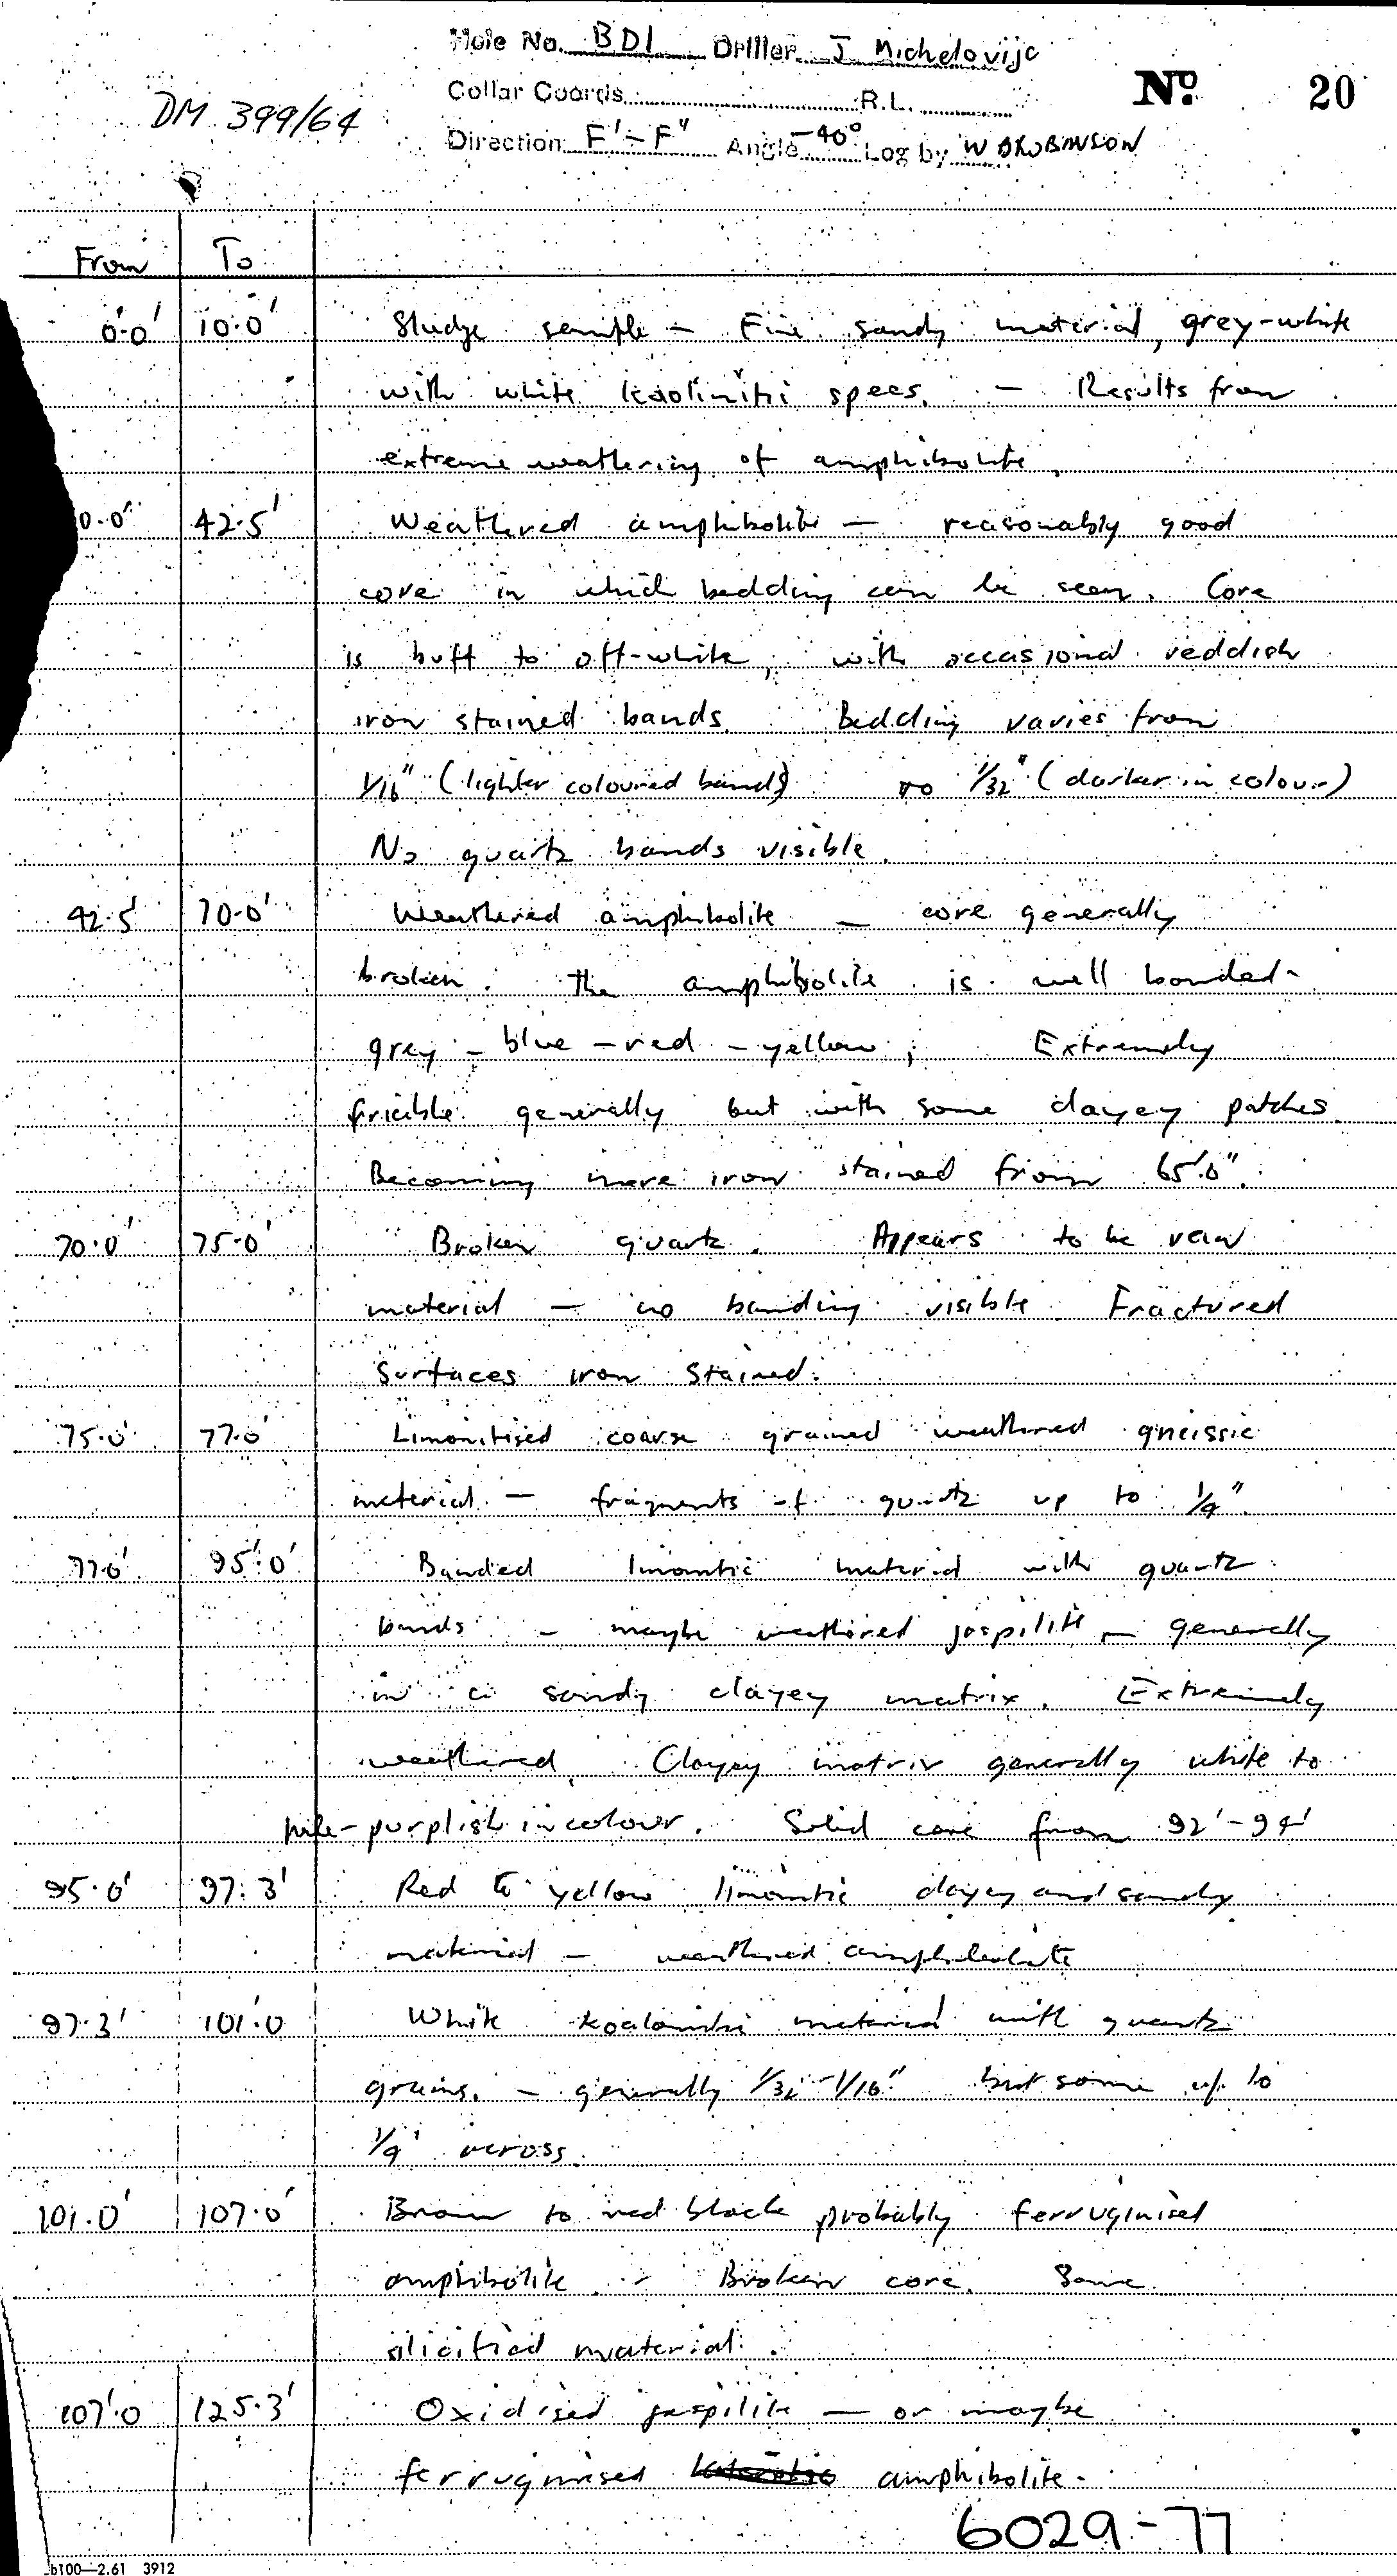 Hole No. BD1 Driller J Michelovijc
Collar Coords R.L.
No. 20
DM 399/64
Direction F'-F" Angle -40° Log by W B ROBINSON
From To
0·0' 10·0' Sludge sample - Fine sandy material, grey-white
with white kaolinitic specs. - Results from
extreme weathering of amphibolite.
0·0' 42·5' Weathered amphibolite - reasonably good
core in which bedding can be seen. Core
is buff to off-white, with occasional reddish
iron stained bands. Bedding varies from
1/16" (lighter coloured bands) to 1/32" (darker in colour)
No quartz bands visible.
42·5' 70·0' Weathered amphibolite - core generally
broken. The amphibolite is well banded-
grey - blue - red - yellow; Extremely
friable generally but with some clayey patches.
Becoming more iron stained from 65'0".
70·0' 75·0' Broken quartz. Appears to be vein
material - no banding visible. Fractured
surfaces iron stained.
75·0' 77·0' Limonitised coarse grained weathered gneissic
material - fragments of quartz up to 1/4".
77·0' 95'·0' Banded limonitic material with quartz
bands - maybe weathered jaspilite - generally
in a sandy clayey matrix. Extremely
weathered. Clayey matrix generally white to
pale-purplish in colour. Solid core from 92'-94'
95·0' 97·3' Red to yellow limonitic clayey and sandy
material - weathered amphibolite
97·3' 101'·0 White koalonitic material with quartz
grains. - generally 1/32"-1/16" but some up to
1/4" across.
101·0' 107·0' Brown to red black probably ferruginised
amphibolite. - Broken core. Some
silicified material.
107'·0 125·3' Oxidised jaspilite - or maybe
ferruginised amphibolite.
6029-77
b100—2.61 3912